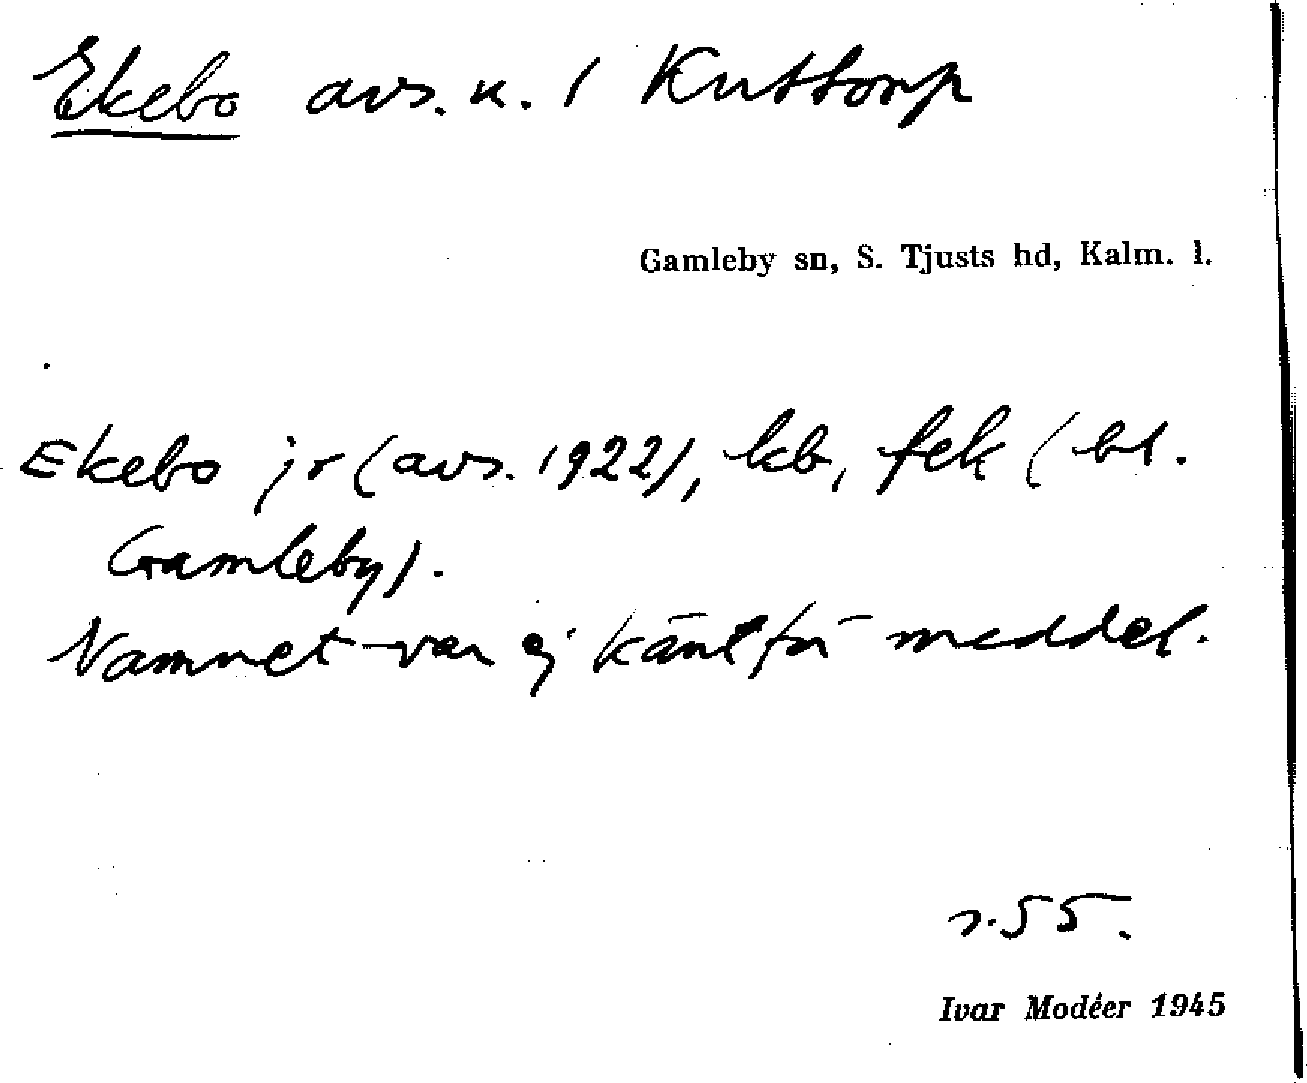 Ekebo avs. u. / Knttorp
Gamleby sn, S. Tjusts hd, Kalm. l.
Ekebo jr (avs. 1922), kb, fek (bl.
Gamleby).
Namnet var ej känt för meddel.
s. 55.
Ivar Modéer 1945